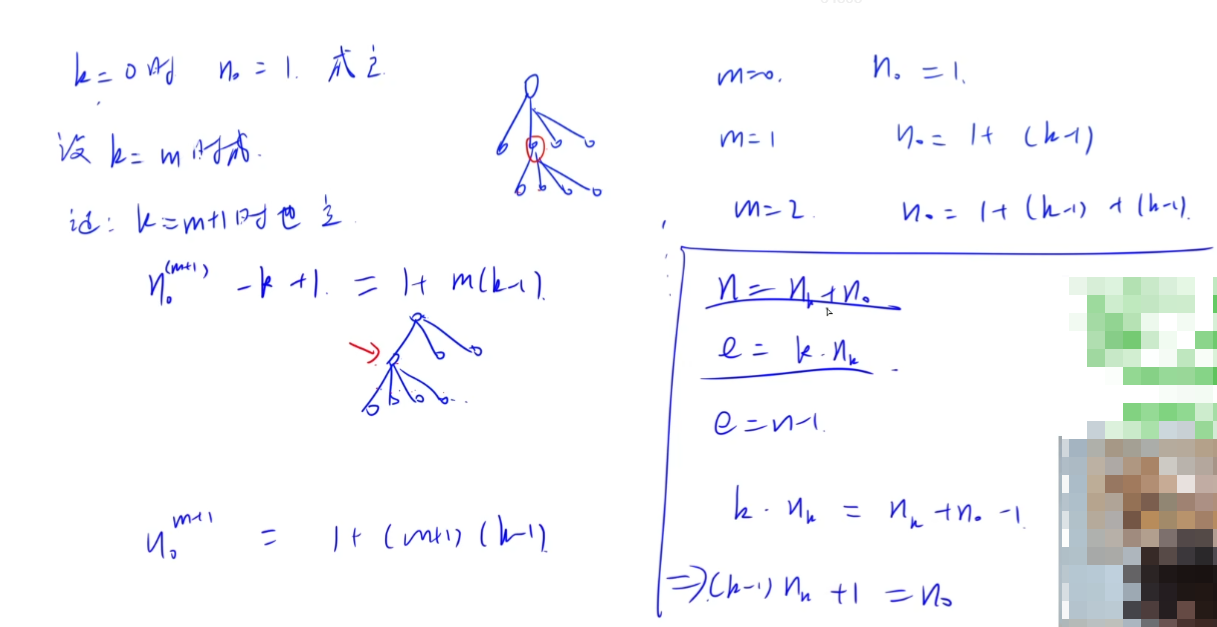 k=0时 n₀ = 1. 成立
设 k=m 时成.
过: k=m+1时也立.
n₀^(m+1) -k+1. = 1+ m(k-1).
n₀^m+1 = 1+(m+1)(k-1).
m=0. n₀ =1.
m=1 n₀= 1+ (k-1)
m=2. n₀= 1+(k-1)+(k-1).
n=nₖ+n₀
e= k·nₖ
e=n-1.
k·nₖ = nₖ+n₀-1.
⇒(k-1)nₖ+1=n₀